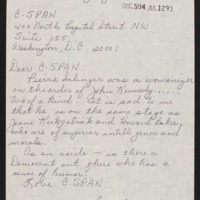 003594 JUL 12 93
C-SPAN
400 North Capitol Street NW
Suite 155
Washington, D.C. 20001
Dear C-SPAN,
Pierre Salinger was a womanizer
on the order of John Kennedy.....
two of a kind! It is sad to me
that he is on the same stage as
Jeane Kirkpatrick and Howard Baker,
who are of superior intelligence and
morals.
As an aside — is there a
Democrat out there who has a
sense of humor?
Love C SPAN,